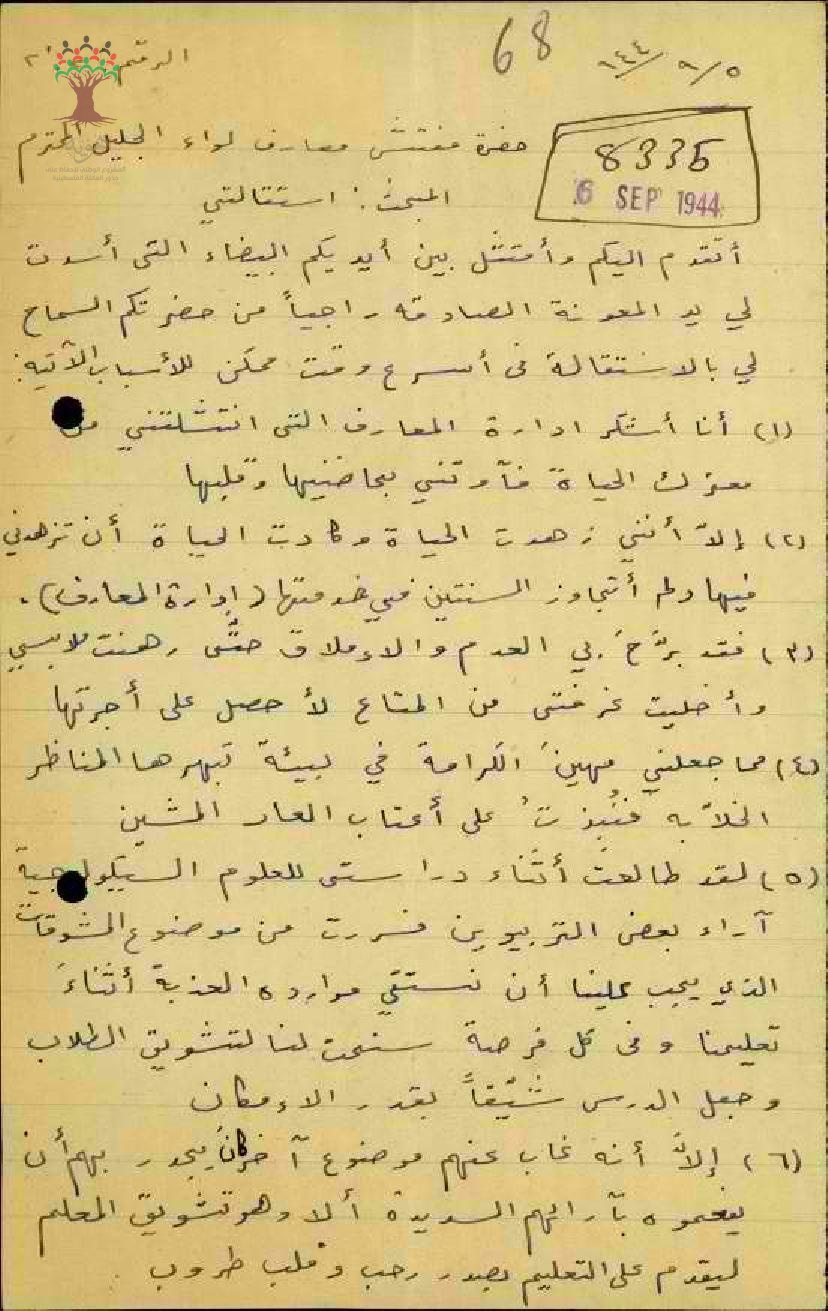 68
٥/٩/١٩٤٤
الرقم ٢٠
8335
6 SEP 1944
حضرة مفتش معارف لواء الجليل المحترم
المبحث: استقالتي
أتقدم اليكم وأمتثل بين أيديكم البيضاء التي أسدت
لي يد المعونة الصادقة راجياً من حضرتكم السماح
لي بالاستقالة في أسرع وقت ممكن للأسباب الآتية:
(١) أنا أشكر ادارة المعارف التي انتشلتني من
معترك الحياة فآوتني بحاضنيها وقلبها
(٢) إلاّ أنني زهدت الحياة وكادت الحياة أن تزهدني
فيها ولم أتجاوز السنتين في خدمتها (إدارة المعارف).
(٣) فقد برَّحَ بي العدم والاملاق حتَّى رهنت ملابسي
وأخليت غرفتي من المتاع لأحصل على أجرتها
(٤) مما جعلني مهينَ الكرامة في بيئة تبهرها المناظر
الخلاّبه فنُبذتُ على أعتاب العار المشين
(٥) لقد طالعت أثناء دراستي للعلوم السيكولوجية
آراء بعض التربيويين فسررت من موضوع المشوقات
الذي يجب علينا أن نستقي موارده العذبة أثناءَ
تعليمنا وفي كل فرصة سنحت لنا لتشويق الطلاب
وجعل الدرس شيّقاً بقدر الامكان
(٦) إلاَّ أنه غاب عنهم موضوع آخر كانَ يجدر بهم أن
يفعموه بآرائهم السديدة ألا وهو تشويق المعلم
ليقدم على التعليم بصدر رحب وقلب طروب